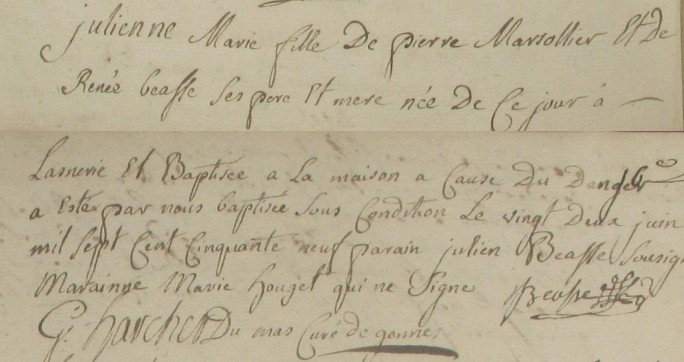 julienne Marie fille De pierre Marsollier Et De
Renée beasse ses pere Et mere née De Ce jour à —
Lasnerie Et Baptisée a La maison a Cause Du Danger
a Esté par nous baptisée Sous Condition Le vingt Deux juin
mil Sept Cent Cinquante neuf parain julien Beasse Sousig
Marainne Marie houget qui ne Signe Beasse
G. harcher Du mas Curé de gennes